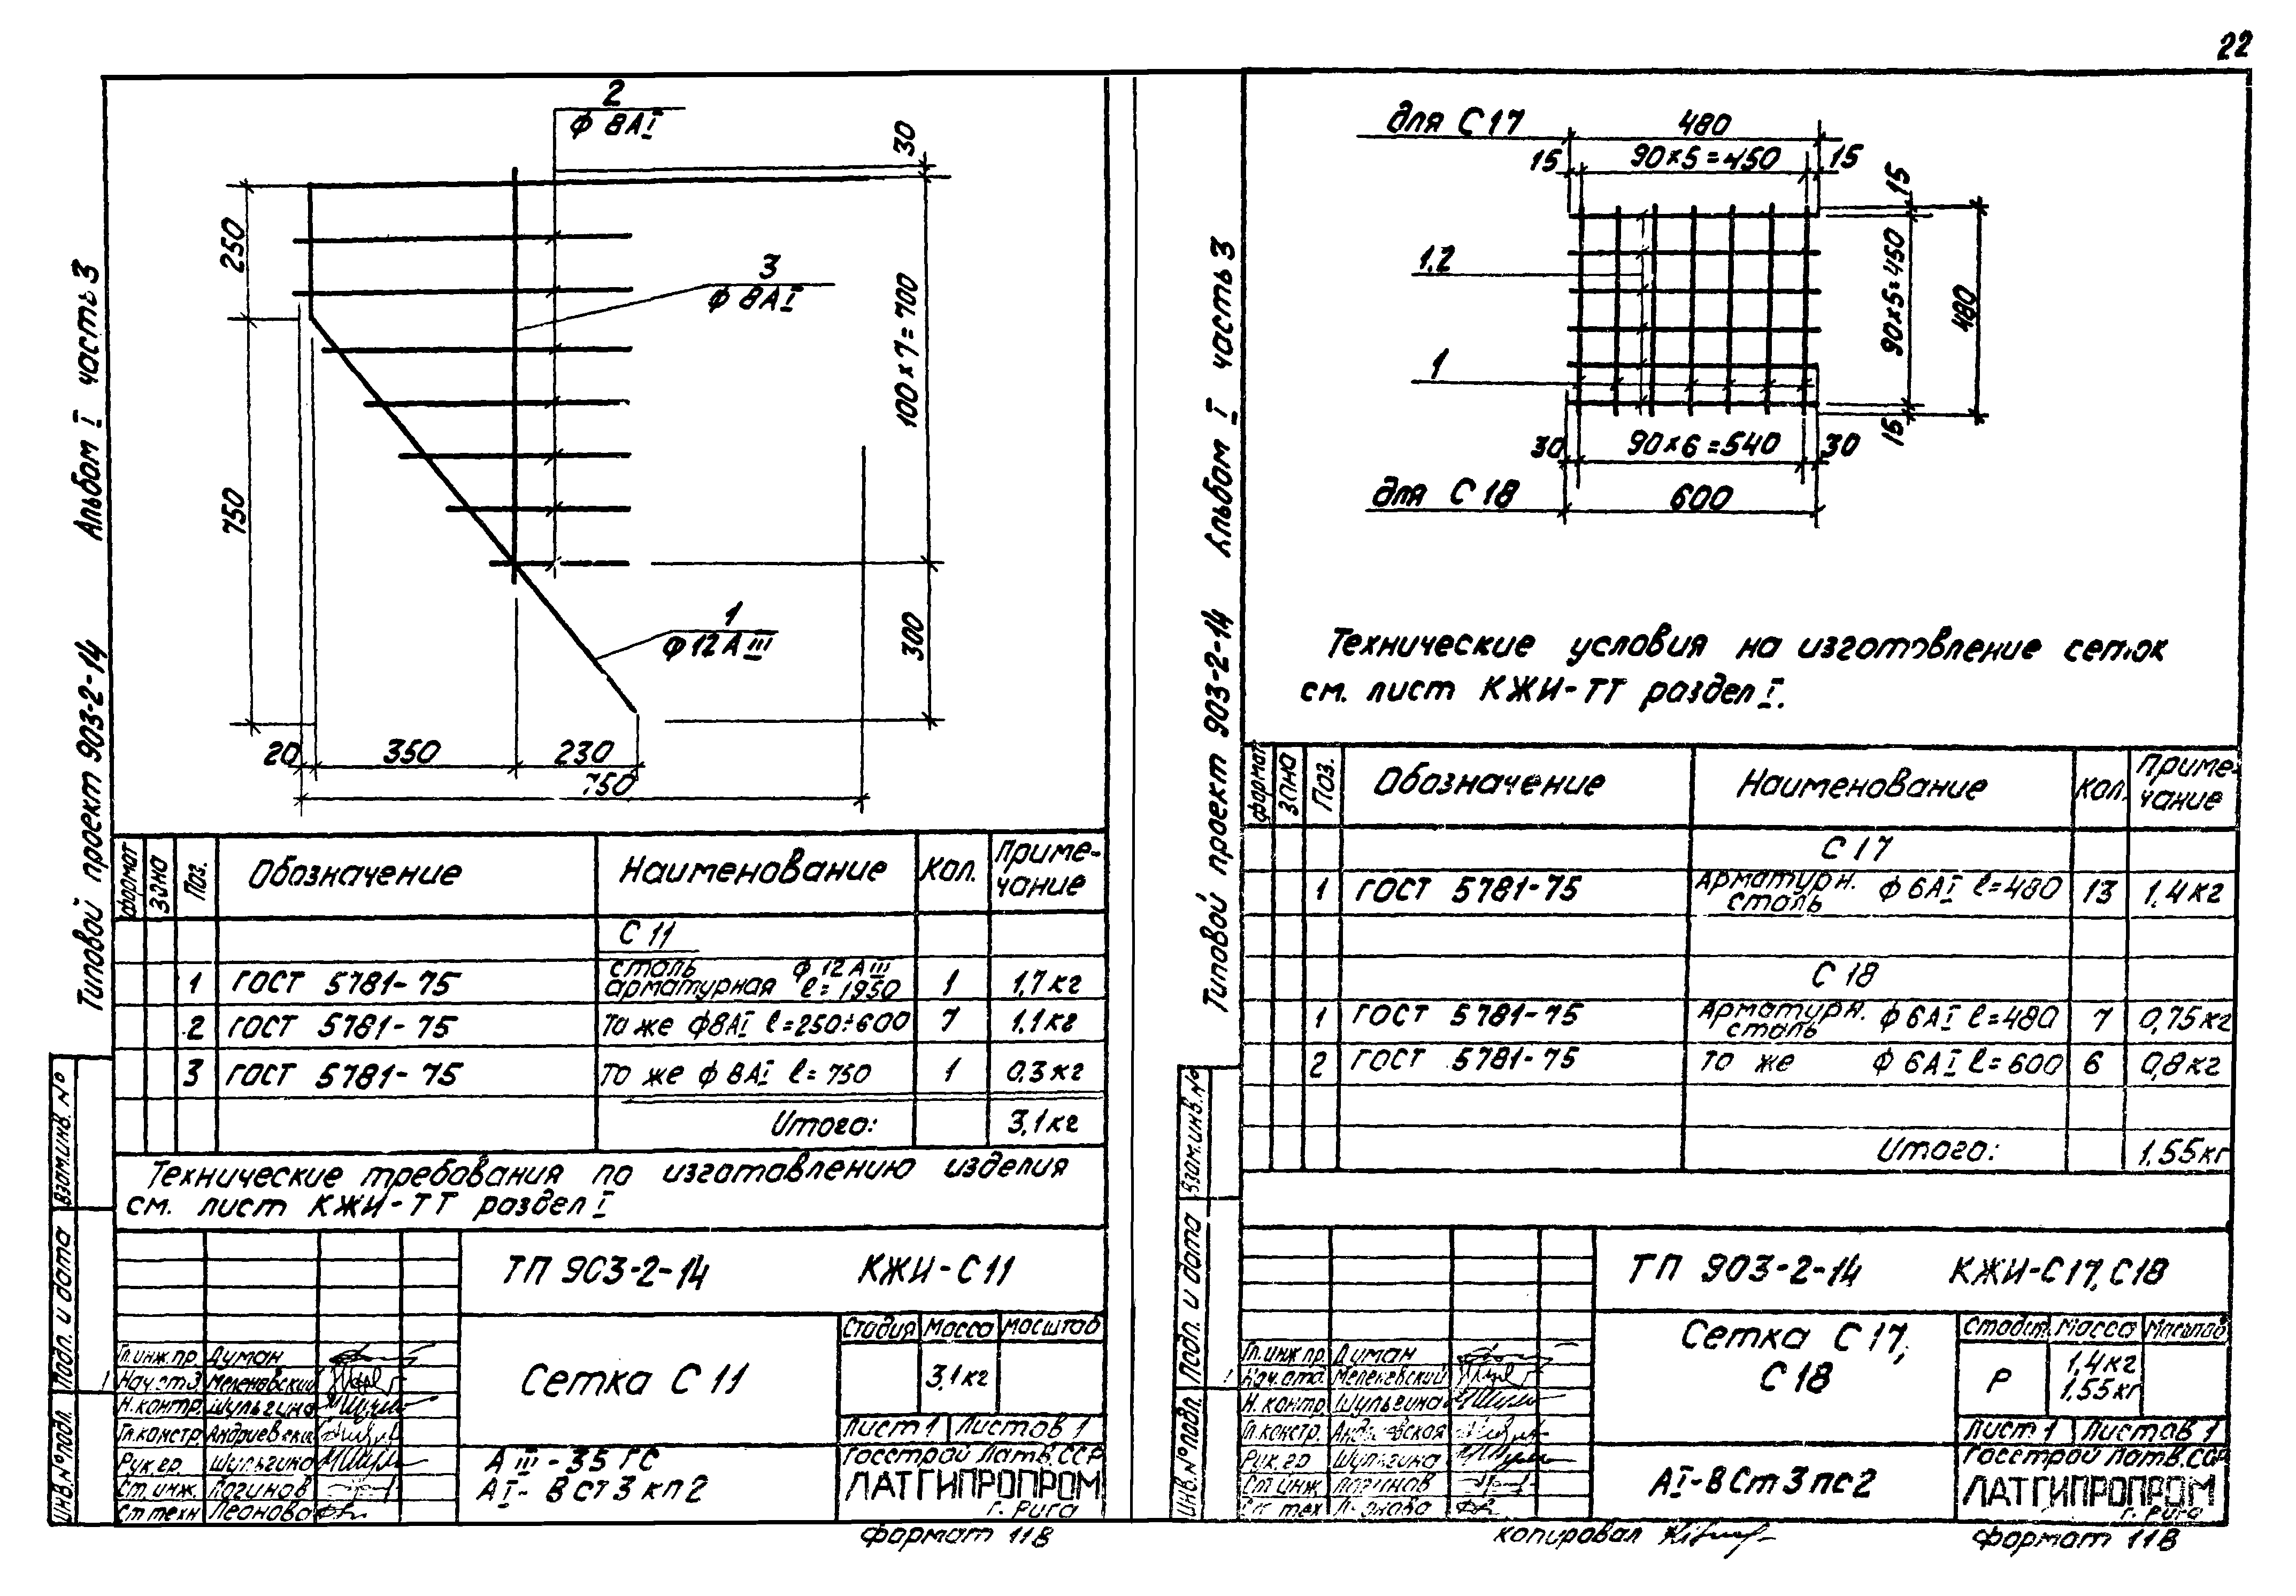 22
Типовой проект 903-2-14 Альбом I часть 3
2
ф 8АI
30
250
3
ф 8АI
100×7=700
750
1
ф12АIII
300
20 350 230
750
формат зона Поз. Обозначение Наименование Кол. Приме-
чание
С 11
1 ГОСТ 5781-75 сталь ф 12АIII
арматурная ℓ=1950 1 1,7кг
2 ГОСТ 5781-75 то же ф8АI ℓ=250÷600 7 1,1кг
3 ГОСТ 5781-75 то же ф 8АI ℓ=750 1 0,3кг
Итого: 3,1кг
Технические требования по изготовлению изделия
см. лист КЖИ-ТТ раздел I
ТП 903-2-14 КЖИ-С11
Стадия Масса Масштаб
Сетка С 11 3,1кг
Лист 1 Листов 1
АIII-35 ГС
АI- ВСт3 кп2
Госстрой Латв.ССР
ЛАТГИПРОПРОМ
г. Рига
Гл.инж.пр. Думан
Нач.от3 Меленевский
Н.контр. Шульгина
Гл.констр.
Рук.гр. Шульгина
Ст.инж. Логинов
Ст техн Леонова
Инв.№подл. Подп. и дата Взам.инв.№
формат 11В
Типовой проект 903-2-14 Альбом I часть 3
для С17 480
15 90×5=450 15
15
1,2
90×5=450
480
1
15
30 90×6=540 30
для С 18 600
Технические условия на изготовление сеток
см. лист КЖИ-ТТ раздел I.
формат зона Поз. Обозначение Наименование кол. Приме-
чание
С 17
1 ГОСТ 5781-75 Арматурн.
сталь ф 6АI ℓ=480 13 1,4кг
С 18
1 ГОСТ 5781-75 Арматурн.
сталь ф 6АI ℓ=480 7 0,75кг
2 ГОСТ 5781-75 то же ф 6АI ℓ=600 6 0,8кг
Итого: 1,55кг
ТП 903-2-14 КЖИ-С17, С18
Сетка С 17,
С 18
Масса
Р 1,4кг
1,55кг
Лист 1 Листов 1
АI-ВСт3пс2
Госстрой Латв.ССР
ЛАТГИПРОПРОМ
г. Рига
Гл.инж.пр. Думан
Меленевский
Н.контр Шульгина
Гл.констр.
Рук.гр Шульгина
Ст.инж. Логинов
Инв.№подл. Подп. и дата Взам.инв.№
копировал
формат 11В